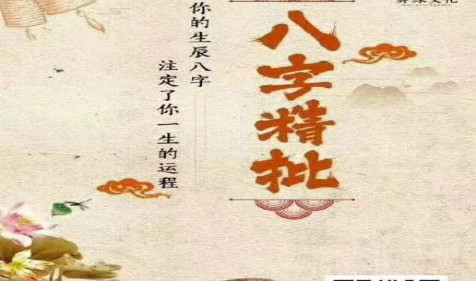 八字精批
你的生辰八字
注定了你一生的运程